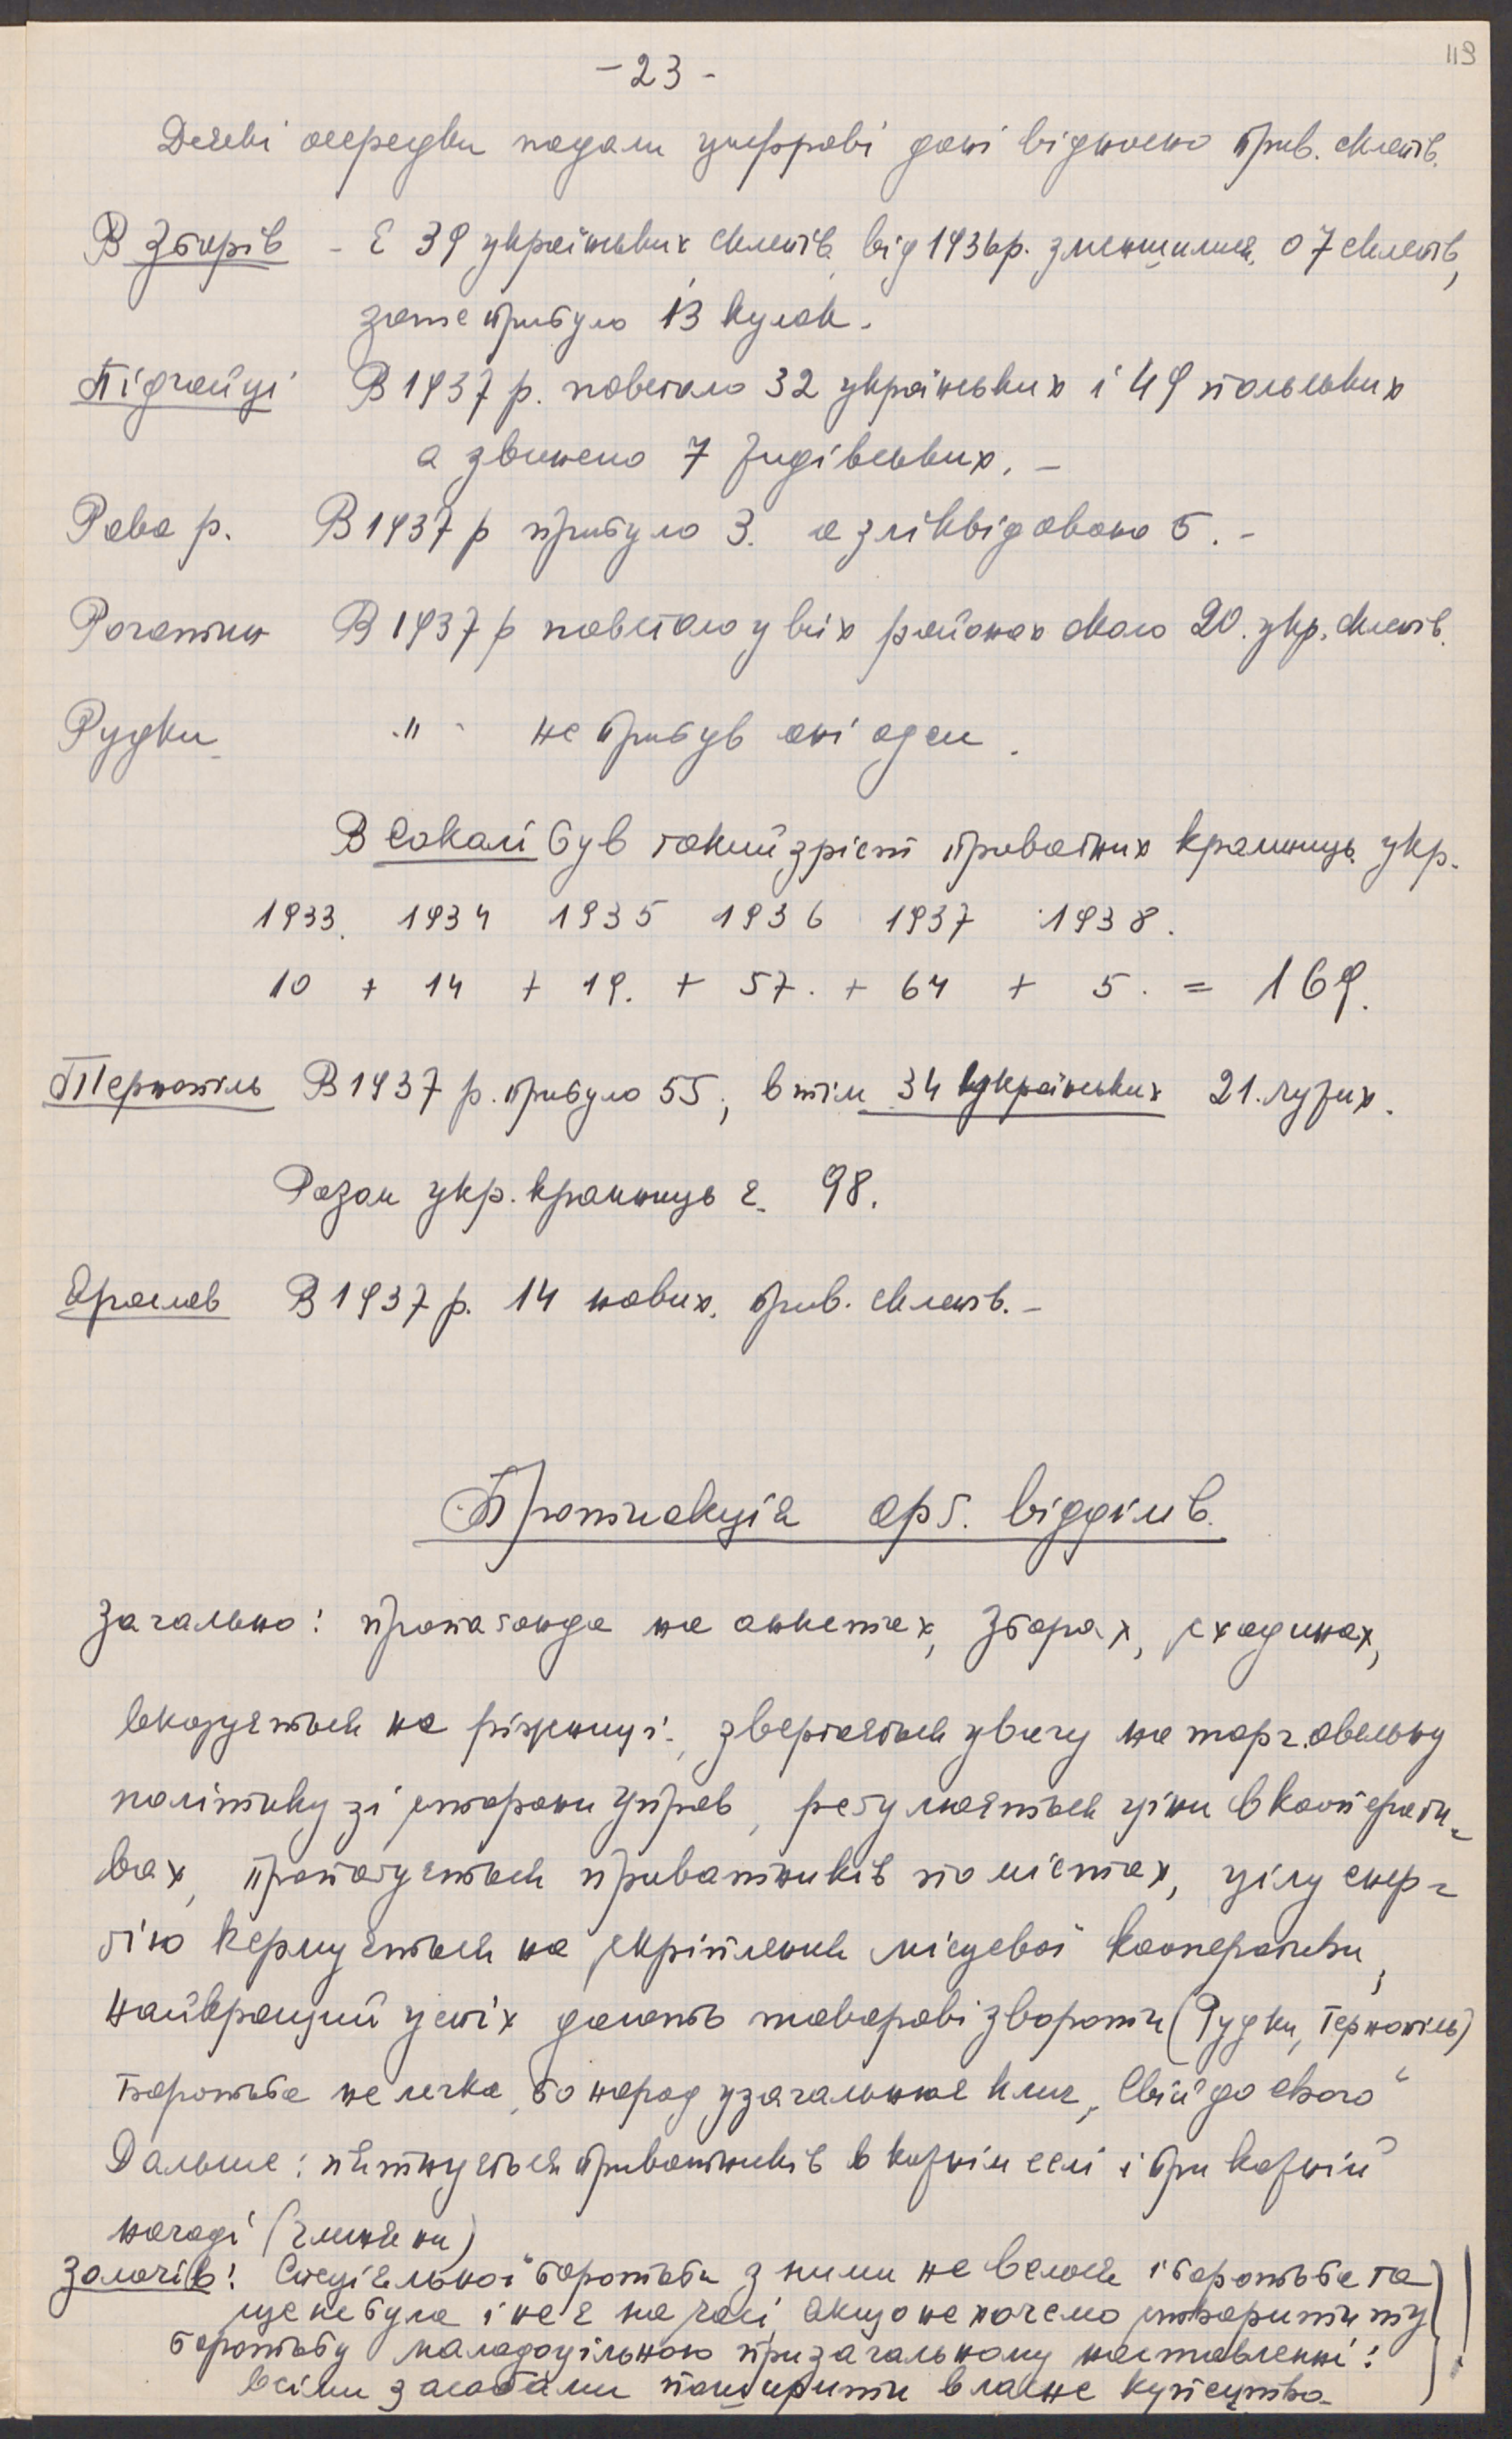 119
- 23 -
Деякі осередки подали цифрові дані відносно прив. склепів.
В Зборів - Є 39 українських склепів від 1936 р. зменшилися о 7 склепів,
зате прибуло 13 кулок.
Підгайці В 1937 р. повстало 32 українських і 49 польських
а звинено 7 жидівських. -
Рава р. В 1937 р прибуло 3. а зліквідовано 5. -
Рогатин В 1937 р повстало у всіх районах около 20. укр. склепів.
Рудки -"- не прибув ані оден.
В Сокалі був такий зріст приватних крамниць укр.
1933. 1934 1935 1936 1937 1938.
10 + 14 + 19. + 57. + 64 + 5. = 169.
Тернопіль В 1937 р. прибуло 55, в тім 34 українських 21. чужих.
Разом укр. крамниць є 98.
Ярослав В 1937 р. 14 нових. прив. склепів. -
Протиакція орґ. відділів.
Загально: пропаґанда на анкетах, зборах, сходинах,
вказується на ріжниці, звертається увагу на торговельну
політику зі сторони Управ, реґулюється ціни в коопераати-
вах, пропаґується приватників по містах, цілу енер-
ґію кермується на скріплення місцевої кооперативи,
найкращий успіх дають товарові звороти (Рудки, Тернопіль)
Боротьба не легка, бо народ узагальнює клич „Свій до свого“
Дальше: пятнується приватників в кожнім селі і при кожній
нагоді (Глиняни)
Золочів: Спеціяльної боротьби з ними не велося і боротьба та
ще не була і не є на часі, якщо не хочемо створити ту
боротьбу малодоцільною при загальному наставленні:
всіми засобами поширити власне купецтво.